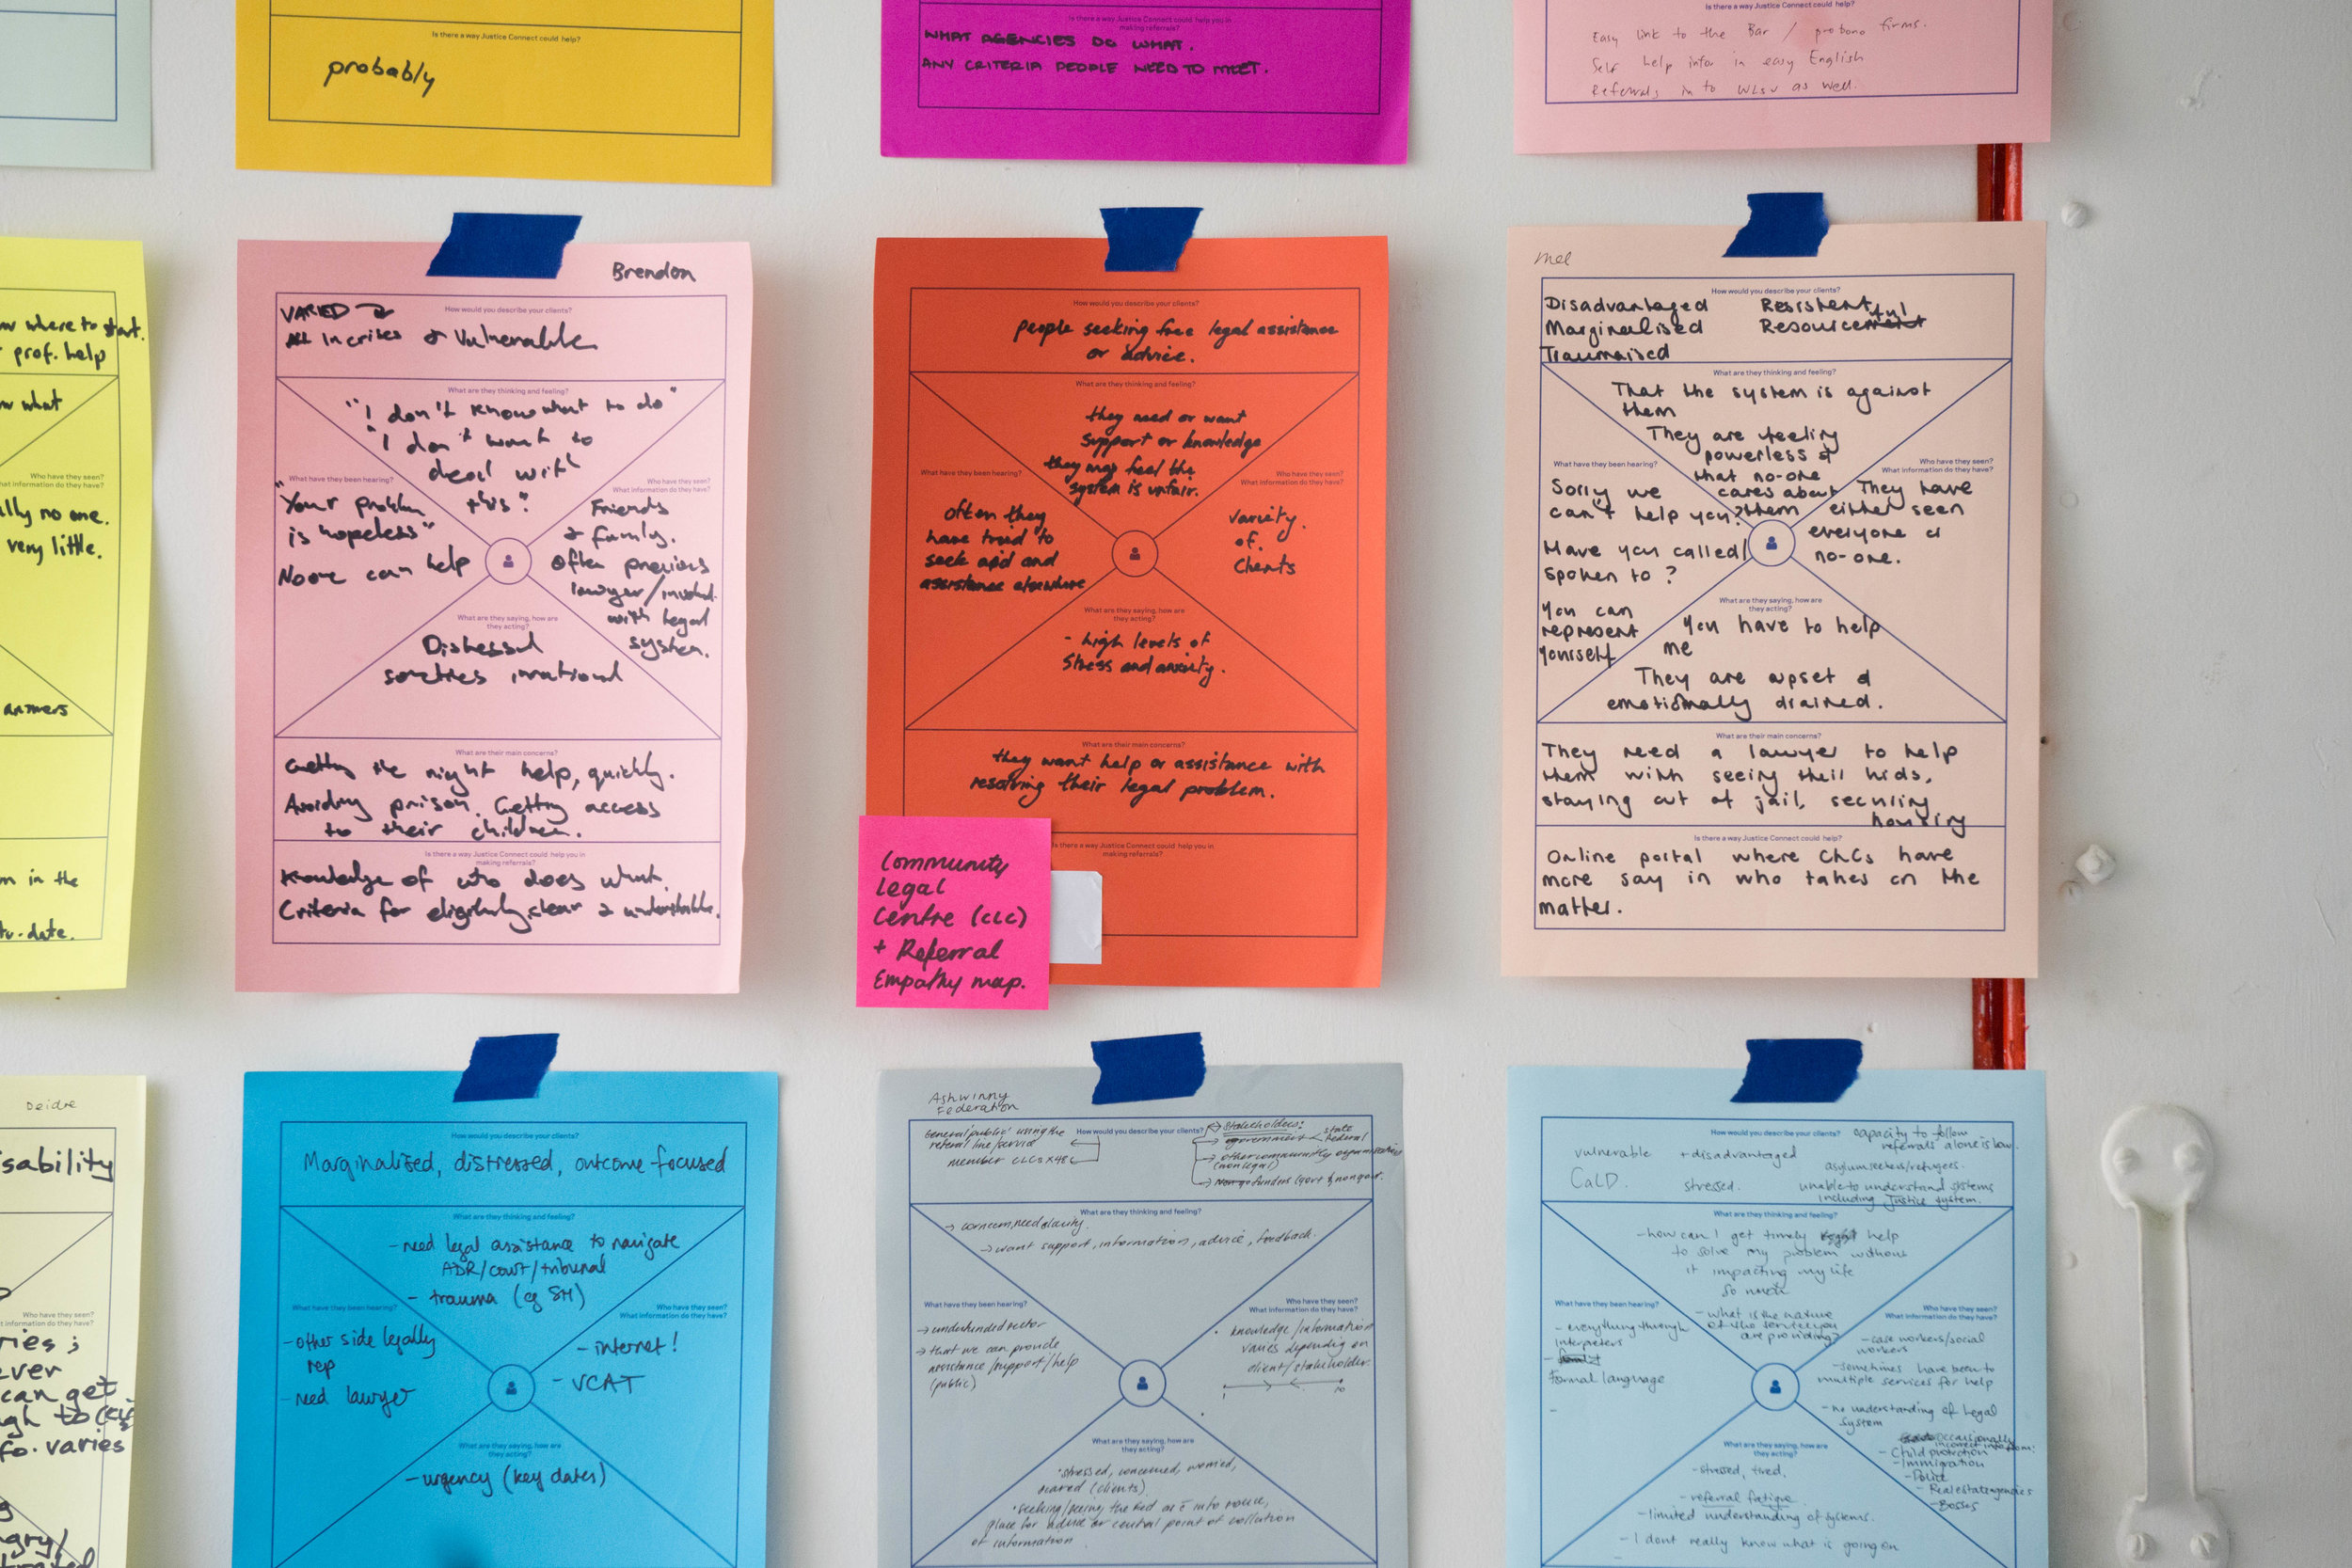 Is there a way Justice Connect could help?
probably
Is there a way Justice Connect could help you in
making referrals?
WHAT AGENCIES DO WHAT.
ANY CRITERIA PEOPLE NEED TO MEET.
Is there a way Justice Connect could help?
Easy link to the Bar / probono firms.
Self help info in easy English
Referrals in to WLSV as well.
where to start.
prof. help
what
Who have they seen?
What information do they have?
no one.
very little.
answers
in the
to-date.
Brendon
How would you describe your clients?
VARIED
All In crises & Vulnerable
What are they thinking and feeling?
"I don't know what to do"
"I don't want to
deal with
this."
What have they been hearing?
"Your problem
is hopeless"
Noone can help
Who have they seen?
What information do they have?
Friends
& family.
Often previous
lawyer/involvd.
with legal
system.
What are they saying, how are
they acting?
Distressed
sometimes irrational
What are their main concerns?
Getting the right help, quickly.
Avoiding prison. Getting access
to their children.
Is there a way Justice Connect could help you in
making referrals?
Knowledge of who does what.
Criteria for eligibility clear & understandable.
How would you describe your clients?
people seeking free legal assistance
or advice.
What are they thinking and feeling?
they need or want
support or knowledge
they may feel the
system is unfair.
What have they been hearing?
often they
have tried to
seek aid and
assistance elsewhere
Who have they seen?
What information do they have?
variety
of
clients
What are they saying, how are
they acting?
- high levels of
stress and anxiety.
What are their main concerns?
they want help or assistance with
resolving their legal problem.
Is there a way Justice Connect could help you in
making referrals?
Community
Legal
Centre (CLC)
+ Referral
Empathy map.
Mel
How would you describe your clients?
Disadvantaged Resistent
Marginalised Resourceful
Traumaised
What are they thinking and feeling?
That the system is against
them
They are feeling
powerless &
that no-one
cares about
them
What have they been hearing?
Sorry we
can't help you?
Have you called/
spoken to?
You can
represent
yourself
Who have they seen?
What information do they have?
They have
either seen
everyone or
no-one.
What are they saying, how are
they acting?
You have to help
me
They are upset &
emotionally drained.
What are their main concerns?
They need a lawyer to help
them with seeing their kids,
staying out of jail, securing
housing
Is there a way Justice Connect could help?
Online portal where CLCs have
more say in who takes on the
matter.
Deidre
sability
Who have they seen?
What information do they have?
ever
can get
varies
How would you describe your clients?
Marginalised, distressed, outcome focused
What are they thinking and feeling?
- need legal assistance to navigate
ADR/court/tribunal
- trauma (eg SH)
What have they been hearing?
- other side legally
rep
- need lawyer
Who have they seen?
What information do they have?
- internet!
- VCAT
What are they saying, how are
they acting?
- urgency (key dates)
Ashwinny
Federation
How would you describe your clients?
General 'public' using the
referral line/service
member CLCs x48
Stakeholders:
government
State
Federal
other community organisations
(non legal)
funders (govt & nongovt.
What are they thinking and feeling?
→ concern, need clarity.
→ want support, information, advice, feedback.
What have they been hearing?
→ underfunded sector
→ that we can provide
assistance/support/help
(public)
Who have they seen?
What information do they have?
knowledge/information
varies depending on
client/stakeholder.
1 10
What are they saying, how are
they acting?
• stressed, concerned, worried,
scared (clients).
place for advice or central point of collation
of information
How would you describe your clients?
vulnerable + disadvantaged
CaLD. stressed.
capacity to follow
referrals alone is low.
asylum seekers/refugees.
unable to understand systems
including Justice system.
What are they thinking and feeling?
- how can I get timely help
to solve my problem without
it impacting my life
so much
- what is the nature
of the service you
are providing?
What have they been hearing?
- everything through
interpreters
formal language
Who have they seen?
What information do they have?
- case workers/social
workers
- sometimes have been to
multiple services for help
- no understanding of legal
system
occasionally
incorrect info from:
- Child protection
- Immigration
- Police
- Real estate agencies
- Bosses
What are they saying, how are
they acting?
- stressed, tired.
- referral fatigue.
- limited understanding of systems.
- I dont really know what is going on